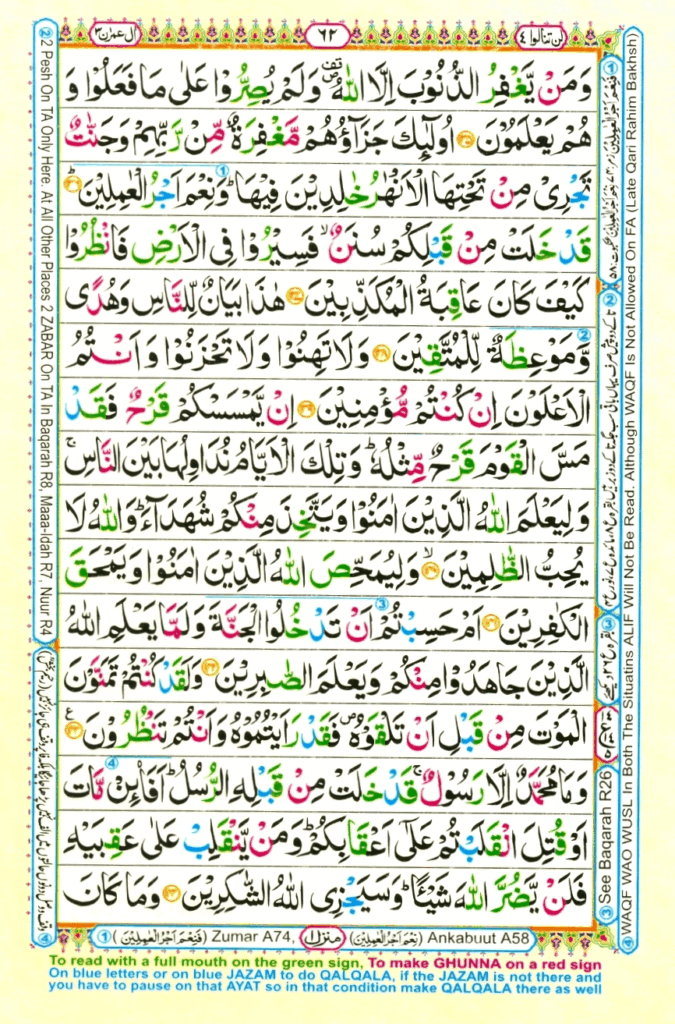 لن تنالوا ٤
٦٢
ال عمرٰن ٣
وَمَنْ يَّغْفِرُ الذُّنُوْبَ اِلَّا اللّٰهُ ۪۫ وَلَمْ يُصِرُّوْا عَلٰى مَا فَعَلُوْا وَ
هُمْ يَعْلَمُوْنَ ﴿۱۳۵﴾ اُولٰٓئِكَ جَزَآؤُهُمْ مَّغْفِرَةٌ مِّنْ رَّبِّهِمْ وَجَنّٰتٌ
تَجْرِىْ مِنْ تَحْتِهَا الْاَنْهٰرُ خٰلِدِيْنَ فِيْهَا ؕ وَنِعْمَ اَجْرُ الْعٰمِلِيْنَ ؕ﴿۱۳۶﴾
قَدْ خَلَتْ مِنْ قَبْلِكُمْ سُنَنٌ ۙ فَسِيْرُوْا فِى الْاَرْضِ فَانْظُرُوْا
كَيْفَ كَانَ عَاقِبَةُ الْمُكَذِّبِيْنَ ﴿۱۳۷﴾ هٰذَا بَيَانٌ لِّلنَّاسِ وَهُدًى
وَّمَوْعِظَةٌ لِّلْمُتَّقِيْنَ ﴿۱۳۸﴾ وَلَا تَهِنُوْا وَلَا تَحْزَنُوْا وَاَنْتُمُ
الْاَعْلَوْنَ اِنْ كُنْتُمْ مُّؤْمِنِيْنَ ﴿۱۳۹﴾ اِنْ يَّمْسَسْكُمْ قَرْحٌ فَقَدْ
مَسَّ الْقَوْمَ قَرْحٌ مِّثْلُهٗ ؕ وَتِلْكَ الْاَيَّامُ نُدَاوِلُهَا بَيْنَ النَّاسِ ۚ
وَلِيَعْلَمَ اللّٰهُ الَّذِيْنَ اٰمَنُوْا وَيَتَّخِذَ مِنْكُمْ شُهَدَآءَ ؕ وَاللّٰهُ لَا
يُحِبُّ الظّٰلِمِيْنَ ۙ﴿۱۴۰﴾ وَلِيُمَحِّصَ اللّٰهُ الَّذِيْنَ اٰمَنُوْا وَيَمْحَقَ
الْكٰفِرِيْنَ ﴿۱۴۱﴾ اَمْ حَسِبْتُمْ اَنْ تَدْخُلُوا الْجَنَّةَ وَلَمَّا يَعْلَمِ اللّٰهُ
الَّذِيْنَ جَاهَدُوْا مِنْكُمْ وَيَعْلَمَ الصّٰبِرِيْنَ ﴿۱۴۲﴾ وَلَقَدْ كُنْتُمْ تَمَنَّوْنَ
الْمَوْتَ مِنْ قَبْلِ اَنْ تَلْقَوْهُ ۪ فَقَدْ رَاَيْتُمُوْهُ وَاَنْتُمْ تَنْظُرُوْنَ ﴿۱۴۳﴾
وَمَا مُحَمَّدٌ اِلَّا رَسُوْلٌ ۚ قَدْ خَلَتْ مِنْ قَبْلِهِ الرُّسُلُ ؕ اَفَا۟ئِنْ مَّاتَ
اَوْ قُتِلَ انْقَلَبْتُمْ عَلٰٓى اَعْقَابِكُمْ ؕ وَمَنْ يَّنْقَلِبْ عَلٰى عَقِبَيْهِ
فَلَنْ يَّضُرَّ اللّٰهَ شَيْـًٔا ؕ وَسَيَجْزِى اللّٰهُ الشّٰكِرِيْنَ ﴿۱۴۴﴾ وَمَا كَانَ
② 2 Pesh On TA Only Here. At All Other Places 2 ZABAR On TA In Baqarah R8, Maaa-idah R7, Nuur R4
③ See Baqarah R26
④ WAQF WAO WUSL In Both The Situatins ALIF Will Not Be Read. Although WAQF Is Not Allowed On FA (Late Qari Rahim Bakhsh)
① (فَنِعْمَ اَجْرُ الْعٰمِلِيْنَ) Zumar A74, منزل ١ (نِعْمَ اَجْرُ الْعٰمِلِيْنَ) Ankabuut A58
To read with a full mouth on the green sign, To make GHUNNA on a red sign
On blue letters or on blue JAZAM to do QALQALA, if the JAZAM is not there and
you have to pause on that AYAT so in that condition make QALQALA there as well